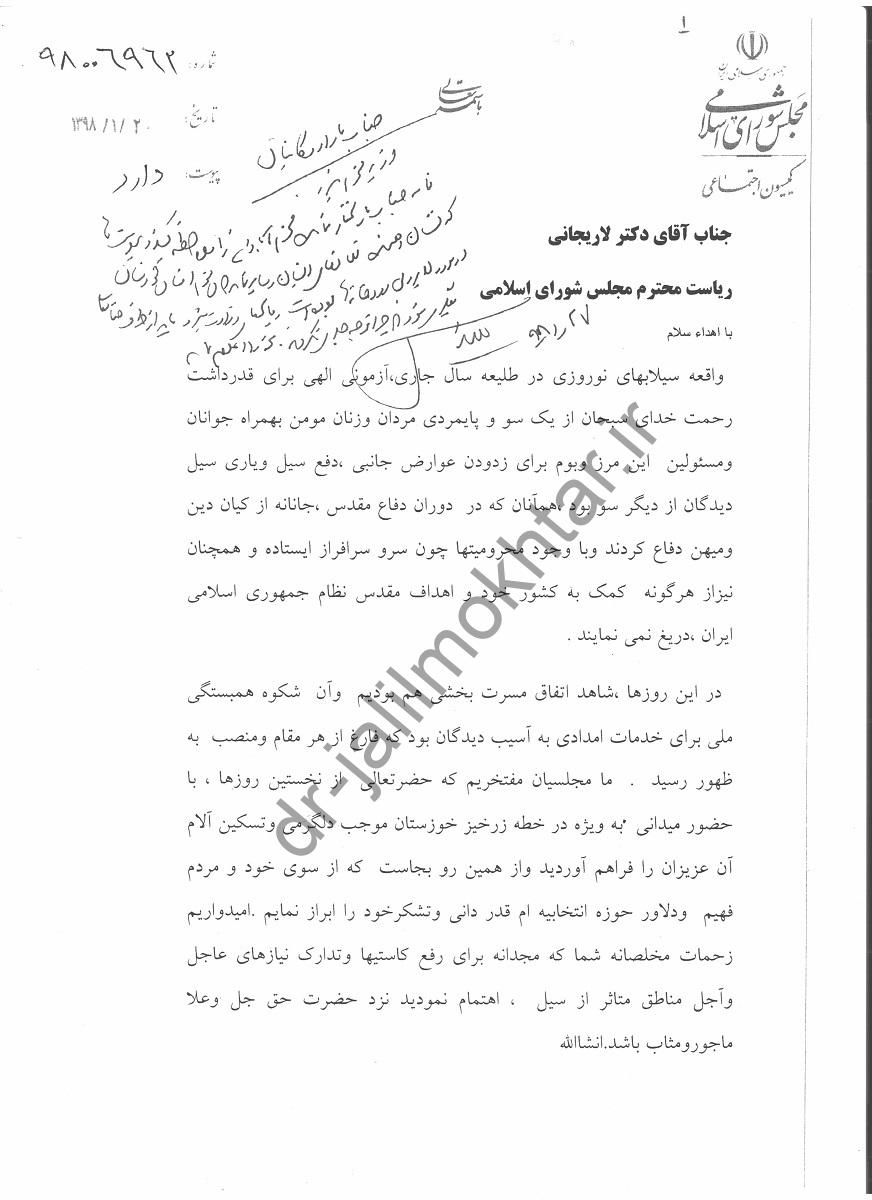 ۱
جمهوری اسلامی ایران
مجلس شورای اسلامی
کمیسیون اجتماعی
باسمه تعالی
شماره: ۹۸۰۰۶۹۶۲
تاریخ: ۱۳۹۸/۱/۲۰
پیوست: دارد
جناب آقای دکتر لاریجانی
ریاست محترم مجلس شورای اسلامی
با اهداء سلام
واقعه سیلابهای نوروزی در طلیعه سال جاری،آزمونی الهی برای قدرداشت
رحمت خدای سبحان از یک سو و پایمردی مردان وزنان مومن بهمراه جوانان
ومسئولین این مرز وبوم برای زدودن عوارض جانبی ،دفع سیل ویاری سیل
دیدگان از دیگر سو بود ،همآنان که در دوران دفاع مقدس ،جانانه از کیان دین
ومیهن دفاع کردند وبا وجود محرومیتها چون سرو سرافراز ایستاده و همچنان
نیزاز هرگونه کمک به کشور خود و اهداف مقدس نظام جمهوری اسلامی
ایران ،دریغ نمی نمایند .
در این روزها ،شاهد اتفاق مسرت بخشی هم بودیم وآن شکوه همبستگی
ملی برای خدمات امدادی به آسیب دیدگان بود که فارغ از هر مقام ومنصب به
ظهور رسید . ما مجلسیان مفتخریم که حضرتعالی از نخستین روزها ، با
حضور میدانی به ویژه در خطه زرخیز خوزستان موجب دلگرمی وتسکین آلام
آن عزیزان را فراهم آوردید واز همین رو بجاست که از سوی خود و مردم
فهیم ودلاور حوزه انتخابیه ام قدر دانی وتشکرخود را ابراز نمایم .امیدواریم
زحمات مخلصانه شما که مجدانه برای رفع کاستیها وتدارک نیازهای عاجل
وآجل مناطق متاثر از سیل ، اهتمام نمودید نزد حضرت حق جل وعلا
ماجورومثاب باشد.انشاالله
dr-jalilmokhtar.ir